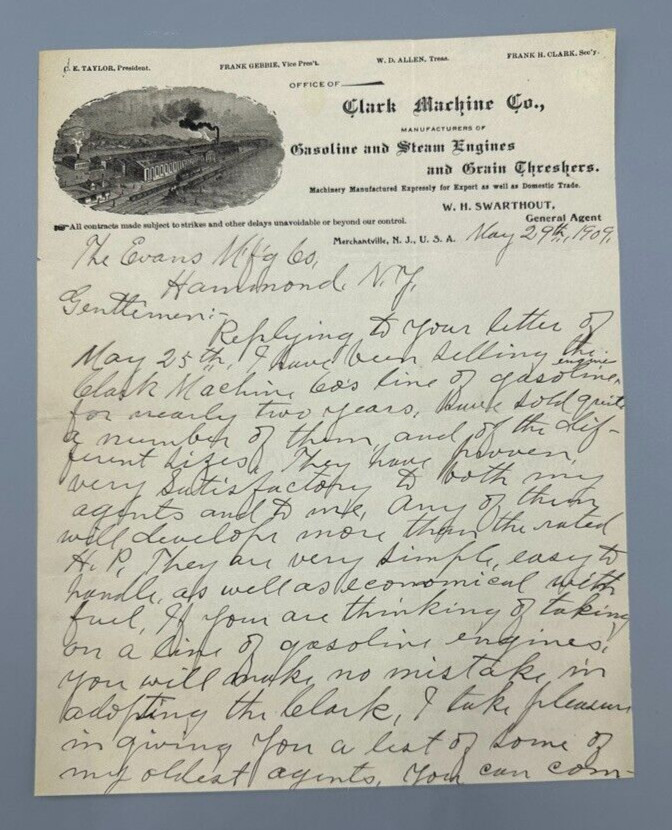 C. E. TAYLOR, President. FRANK GEBBIE, Vice Pres't. W. D. ALLEN, Treas. FRANK H. CLARK, Sec'y.
OFFICE OF
Clark Machine Co.,
MANUFACTURERS OF
Gasoline and Steam Engines
and Grain Threshers.
Machinery Manufactured Expressly for Export as well as Domestic Trade.
W. H. SWARTHOUT,
General Agent
All contracts made subject to strikes and other delays unavoidable or beyond our control.
Merchantville, N. J., U. S. A. May 29th, 1909.
The Evans M'f'g Co,
Hammond, N.Y,
Gentlemen:-
Replying to your letter of
May 25th, I have been selling the
Clark Machine Co's line of gasoline engine
for nearly two years, Have sold quite
a number of them, and of the dif-
ferent sizes. They have proven,
very satisfactory to both my
agents and to me, Any of them
will develope more than the rated
H. P, They are very simple, easy to
handle, as well as economical with
fuel, If you are thinking of taking
on a line of gasoline engines,
you will make no mistake in
adopting the Clark, I take pleasure
in giving you a list of some of
my oldest agents, You can com-